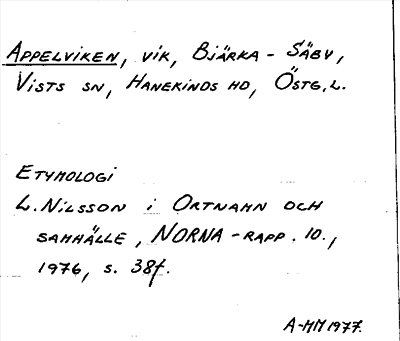 APPELVIKEN, VIK, BJÄRKA - SÄBY,
VISTS SN, HANEKINDS HD, ÖSTG.L.
ETYMOLOGI
L. NILSSON I ORTNAMN OCH
SAMHÄLLE, NORNA-RAPP. 10.,
1976, S. 38f.
A-MM 1977.